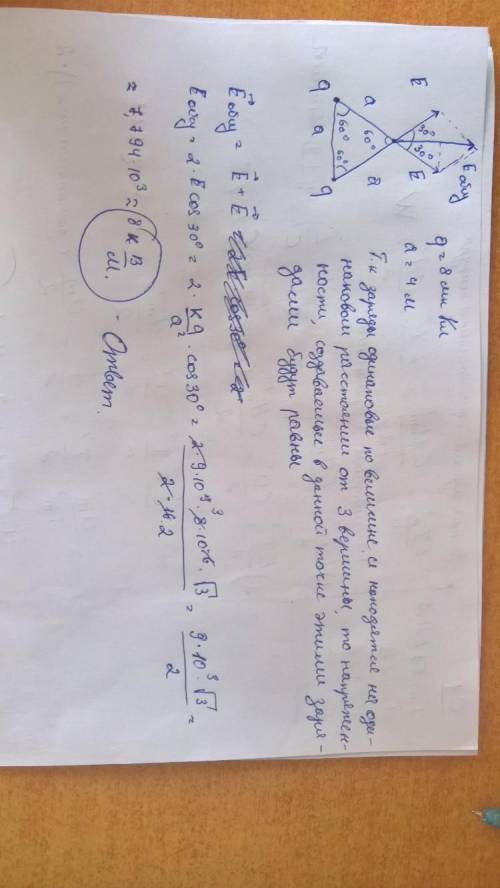 q = 8 мк Кл
a = 4 м
Т.к заряды одинаковые по величине и находятся на оди-
наковом расстоянии от 3 вершины, то напряжен-
ности, создаваемые в данной точке этими заря-
дами будут равны
E
E общ
30°
30°
E
a
60°
a
60°
a
60°
q
q
E⃗общ = E⃗ + E⃗
Eобщ = 2 · E cos 30° = 2 · kq/a² · cos 30° = 2·9·10⁹·8·10⁻⁶·√3 / 2·16·2 = 9·10³·√3 / 2 =
≈ 7,794·10³ ≈ 8 к В/м. - Ответ.